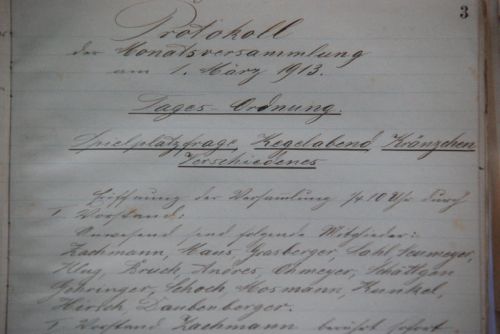 3
Protokoll
der Monatsversammlung
am 1. März 1913.
Tages-Ordnung.
Spielplatzfrage, Kegelabend, Kränzchen
Verschiedenes
Eröffnung der Versamlung 1/4 10 Uhr durch
1 Vorstand:
Anwesend sind folgende Mitglieder:
Zachmann, Haus, Grasberger, Sahl, Neumeyer,
Klug, Bruch, Andres, Ohmeyer, Schättgen
Gehringer, Schoch, Mosmann, Kunkel,
Hirsch, Daubenberger.
1 Vorstand Zachmann